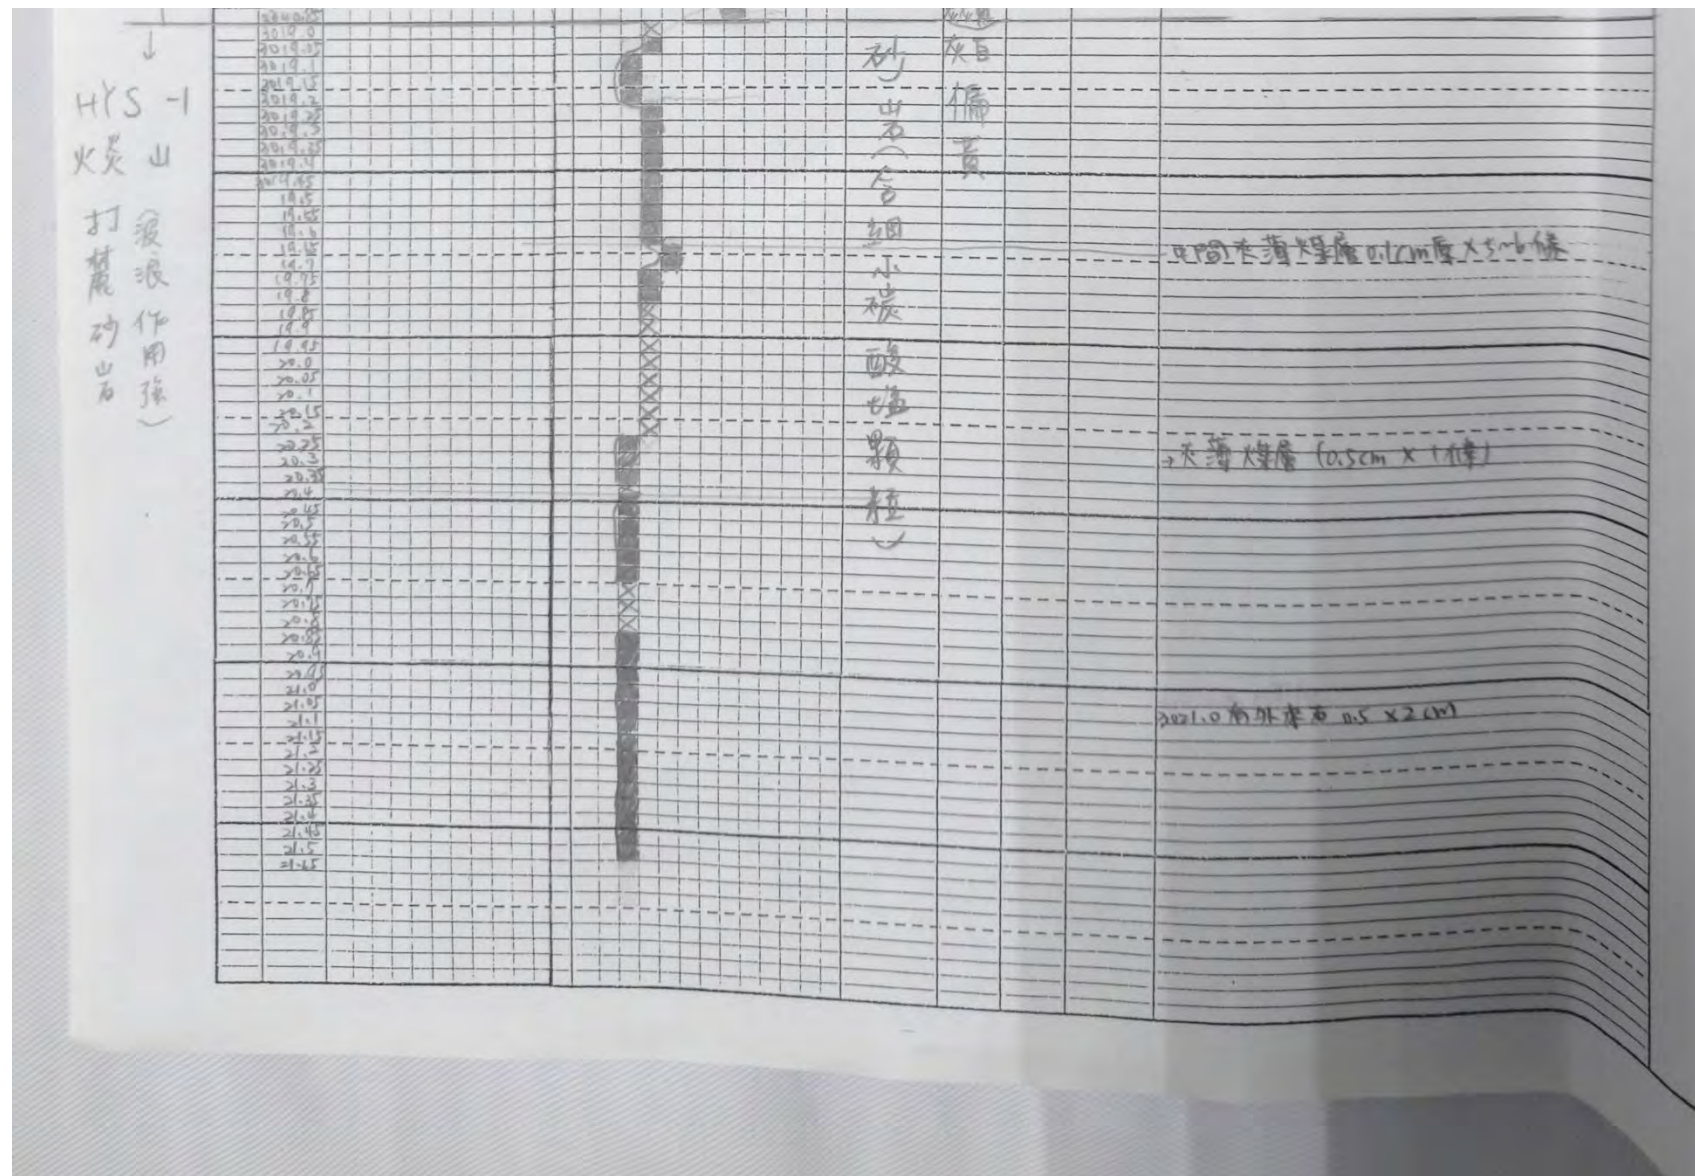 HYS-1
火炎山
打鹿砂岩
(波浪作用強)
3019.0
3019.05
3019.1
3019.15
3019.2
3019.25
3019.3
3019.35
3019.4
3019.45
19.5
19.55
19.6
19.65
19.7
19.75
19.8
19.85
19.9
19.95
20.0
20.05
20.1
20.15
20.2
20.25
20.3
20.35
20.4
20.45
20.5
20.55
20.6
20.65
20.7
20.75
20.8
20.85
20.9
20.95
21.0
21.05
21.1
21.15
21.2
21.25
21.3
21.35
21.4
21.45
21.5
21.65
砂岩(含細小碳酸塩顆粒)
灰白偏黃
中間夾薄煤層0.1cm厚×5~6條
→夾薄煤層(0.5cm×1條)
3021.0有外來石 0.5×2cm)